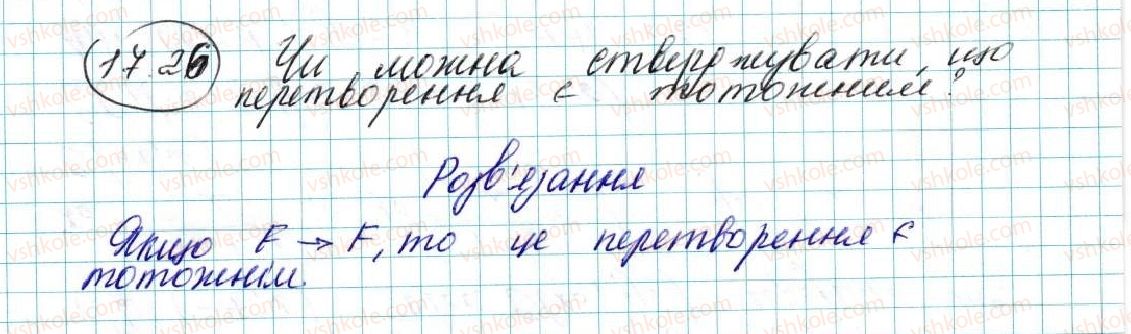 17.26 Чи можна стверджувати, що
перетворення є тотожним?
Розв'язання
Якщо F → F, то це перетворення є
тотожнім.
vshkole.com